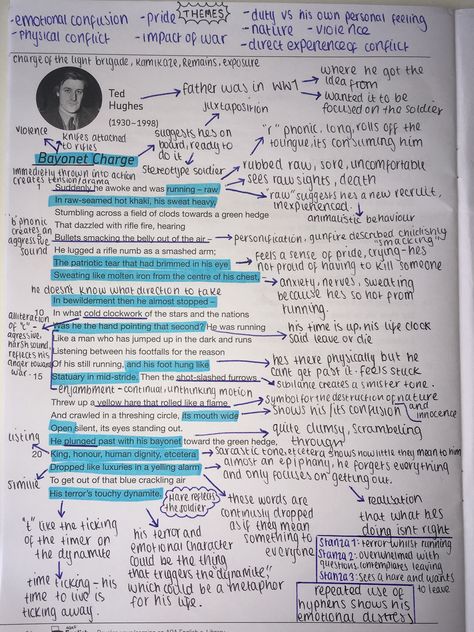 -emotional confusion -pride THEMES -duty vs his own personal feeling
-physical conflict -impact of war -nature -violence
-direct experience of conflict
charge of the light brigade, kamikaze, Remains, exposure
Ted
Hughes
(1930–1998)
father was in WW1
where he got the
idea from
wanted it to be
focused on the soldier
juxtaposition
violence
knifes attached
to rifles
suggests he's on
board, ready to
do it
stereotype soldier
"r" phonic, long, rolls off the
toungue, its consuming him
Bayonet Charge
immedietly thrown into action
creates tension/drama
rubbed raw, sore, uncomfortable
sees raw sights, death
"raw" suggests hes a new recruit,
inexperienced.
animalistic behaviour
1 Suddenly he awoke and was running – raw
In raw-seamed hot khaki, his sweat heavy,
Stumbling across a field of clods towards a green hedge
That dazzled with rifle fire, hearing
'b' phonic
creates an
aggressive
sound
Bullets smacking the belly out of the air –
personification, gunfire described childishly
"smacking"
He lugged a rifle numb as a smashed arm;
The patriotic tear that had brimmed in his eye
Sweating like molten iron from the centre of his chest,
feels a sense of pride, crying - hes
not proud of having to kill someone
anxiety, nerves, sweating
because hes so hot from
running.
he doesnt know what direction to take
In bewilderment then he almost stopped –
10 In what cold clockwork of the stars and the nations
Was he the hand pointing that second? He was running
Like a man who has jumped up in the dark and runs
Listening between his footfalls for the reason
Of his still running, and his foot hung like
15 Statuary in mid-stride. Then the shot-slashed furrows
alliteration
of "c" -
agressive,
harsh
sound
reflects his
anger towards
war
his time is up, his life clock
said leave or die
hes there physically but he
cant get past it. feels stuck
sibilance creates a sinister tone.
-enjambment - continual, unthinking motion
Threw up a yellow hare that rolled like a flame
And crawled in a threshing circle, its mouth wide
Open silent, its eyes standing out.
symbol for the destruction of nature
and
innocence
shows his/its confusion
quite clumsy, scrambeling
through
listing
He plunged past with his bayonet toward the green hedge,
20 King, honour, human dignity, etcetera
Dropped like luxuries in a yelling alarm
To get out of that blue crackling air
His terror's touchy dynamite.
sarcastic tone, etcetera shows how little they mean to him
almost an epiphany, he forgets everything
and only focuses on getting out.
similie
Hare reflects
the soldier
"t" like the ticking
of the timer on
the dynamite
time ticking - his
time to live is
ticking away.
his terror and
emotional character
could be the thing
that triggers the "dynamite,"
which could be a metaphor
for his life.
these words are
continually dropped
as if they mean
something to
everyone
realisation
that what hes
doing isnt right
Stanza 1: terror whilst running
Stanza 2: overwhelmed with
questions, contemplates leaving
Stanza 3: sees a hare and wants
to leave
repeated use of
hyphens shows his
emotional distress